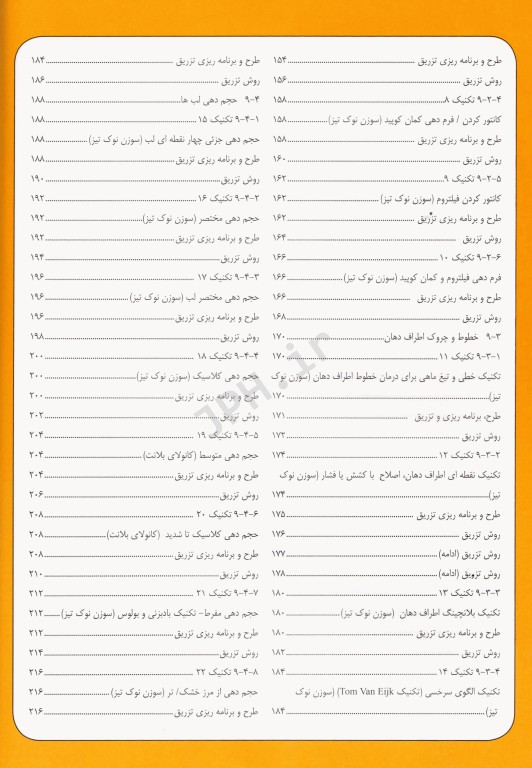 طرح و برنامه ریزی تزریق ........ ۱۵۴
روش تزریق ........ ۱۵۶
۹-۲-۴ تکنیک ۸ ........ ۱۵۸
کانتور کردن / فرم دهی کمان کوپید (سوزن نوک تیز) ........ ۱۵۸
طرح و برنامه ریزی تزریق ........ ۱۵۸
روش تزریق ........ ۱۶۰
۹-۲-۵ تکنیک ۹ ........ ۱۶۲
کانتور کردن فیلتروم (سوزن نوک تیز) ........ ۱۶۲
طرح و برنامه ریزی تزریق ........ ۱۶۲
روش تزریق ........ ۱۶۴
۹-۲-۶ تکنیک ۱۰ ........ ۱۶۶
فرم دهی فیلتروم و کمان کوپید (سوزن نوک تیز) ........ ۱۶۶
طرح و برنامه ریزی تزریق ........ ۱۶۶
روش تزریق ........ ۱۶۸
۹-۳ خطوط و چروک اطراف دهان ........ ۱۷۰
۹-۳-۱ تکنیک ۱۱ ........ ۱۷۰
تکنیک خطی و تیغ ماهی برای درمان خطوط اطراف دهان (سوزن نوک
تیز) ........ ۱۷۰
طرح، برنامه ریزی و تزریق ........ ۱۷۱
روش تزریق ........ ۱۷۲
۹-۳-۲ تکنیک ۱۲ ........ ۱۷۴
تکنیک نقطه ای اطراف دهان، اصلاح با کشش یا فشار (سوزن نوک
تیز) ........ ۱۷۴
طرح و برنامه ریزی تزریق ........ ۱۷۵
روش تزریق ........ ۱۷۶
روش تزریق (ادامه) ........ ۱۷۷
روش تزریق (ادامه) ........ ۱۷۸
۹-۳-۳ تکنیک ۱۳ ........ ۱۸۰
تکنیک بلانچینگ اطراف دهان (سوزن نوک تیز) ........ ۱۸۰
طرح و برنامه ریزی تزریق ........ ۱۸۰
روش تزریق ........ ۱۸۲
۹-۳-۴ تکنیک ۱۴ ........ ۱۸۴
تکنیک الگوی سرخسی (تکنیک Tom Van Eijk) (سوزن نوک
تیز) ........ ۱۸۴
طرح و برنامه ریزی تزریق ........ ۱۸۴
روش تزریق ........ ۱۸۶
۹-۴ حجم دهی لب ها ........ ۱۸۸
۹-۴-۱ تکنیک ۱۵ ........ ۱۸۸
حجم دهی جزئی چهار نقطه ای لب (سوزن نوک تیز) ........ ۱۸۸
طرح و برنامه ریزی تزریق ........ ۱۸۸
روش تزریق ........ ۱۹۰
۹-۴-۲ تکنیک ۱۶ ........ ۱۹۲
حجم دهی مختصر (سوزن نوک تیز) ........ ۱۹۲
طرح و برنامه ریزی تزریق ........ ۱۹۲
روش تزریق ........ ۱۹۴
۹-۴-۳ تکنیک ۱۷ ........ ۱۹۶
حجم دهی مختصر لب (سوزن نوک تیز) ........ ۱۹۶
طرح و برنامه ریزی تزریق ........ ۱۹۶
روش تزریق ........ ۱۹۸
۹-۴-۴ تکنیک ۱۸ ........ ۲۰۰
حجم دهی کلاسیک (سوزن نوک تیز) ........ ۲۰۰
طرح و برنامه ریزی تزریق ........ ۲۰۰
روش تزریق ........ ۲۰۲
۹-۴-۵ تکنیک ۱۹ ........ ۲۰۴
حجم دهی متوسط (کانولای بلانت) ........ ۲۰۴
طرح و برنامه ریزی تزریق ........ ۲۰۴
روش تزریق ........ ۲۰۶
۹-۴-۶ تکنیک ۲۰ ........ ۲۰۸
حجم دهی کلاسیک تا شدید (کانولای بلانت) ........ ۲۰۸
طرح و برنامه ریزی تزریق ........ ۲۰۸
روش تزریق ........ ۲۱۰
۹-۴-۷ تکنیک ۲۱ ........ ۲۱۲
حجم دهی مفرط- تکنیک بادبزنی و بولوس (سوزن نوک تیز) ........ ۲۱۲
طرح و برنامه ریزی تزریق ........ ۲۱۲
روش تزریق ........ ۲۱۴
۹-۴-۸ تکنیک ۲۲ ........ ۲۱۶
حجم دهی از مرز خشک/ تر (سوزن نوک تیز) ........ ۲۱۶
طرح و برنامه ریزی تزریق ........ ۲۱۶
JPH.ir